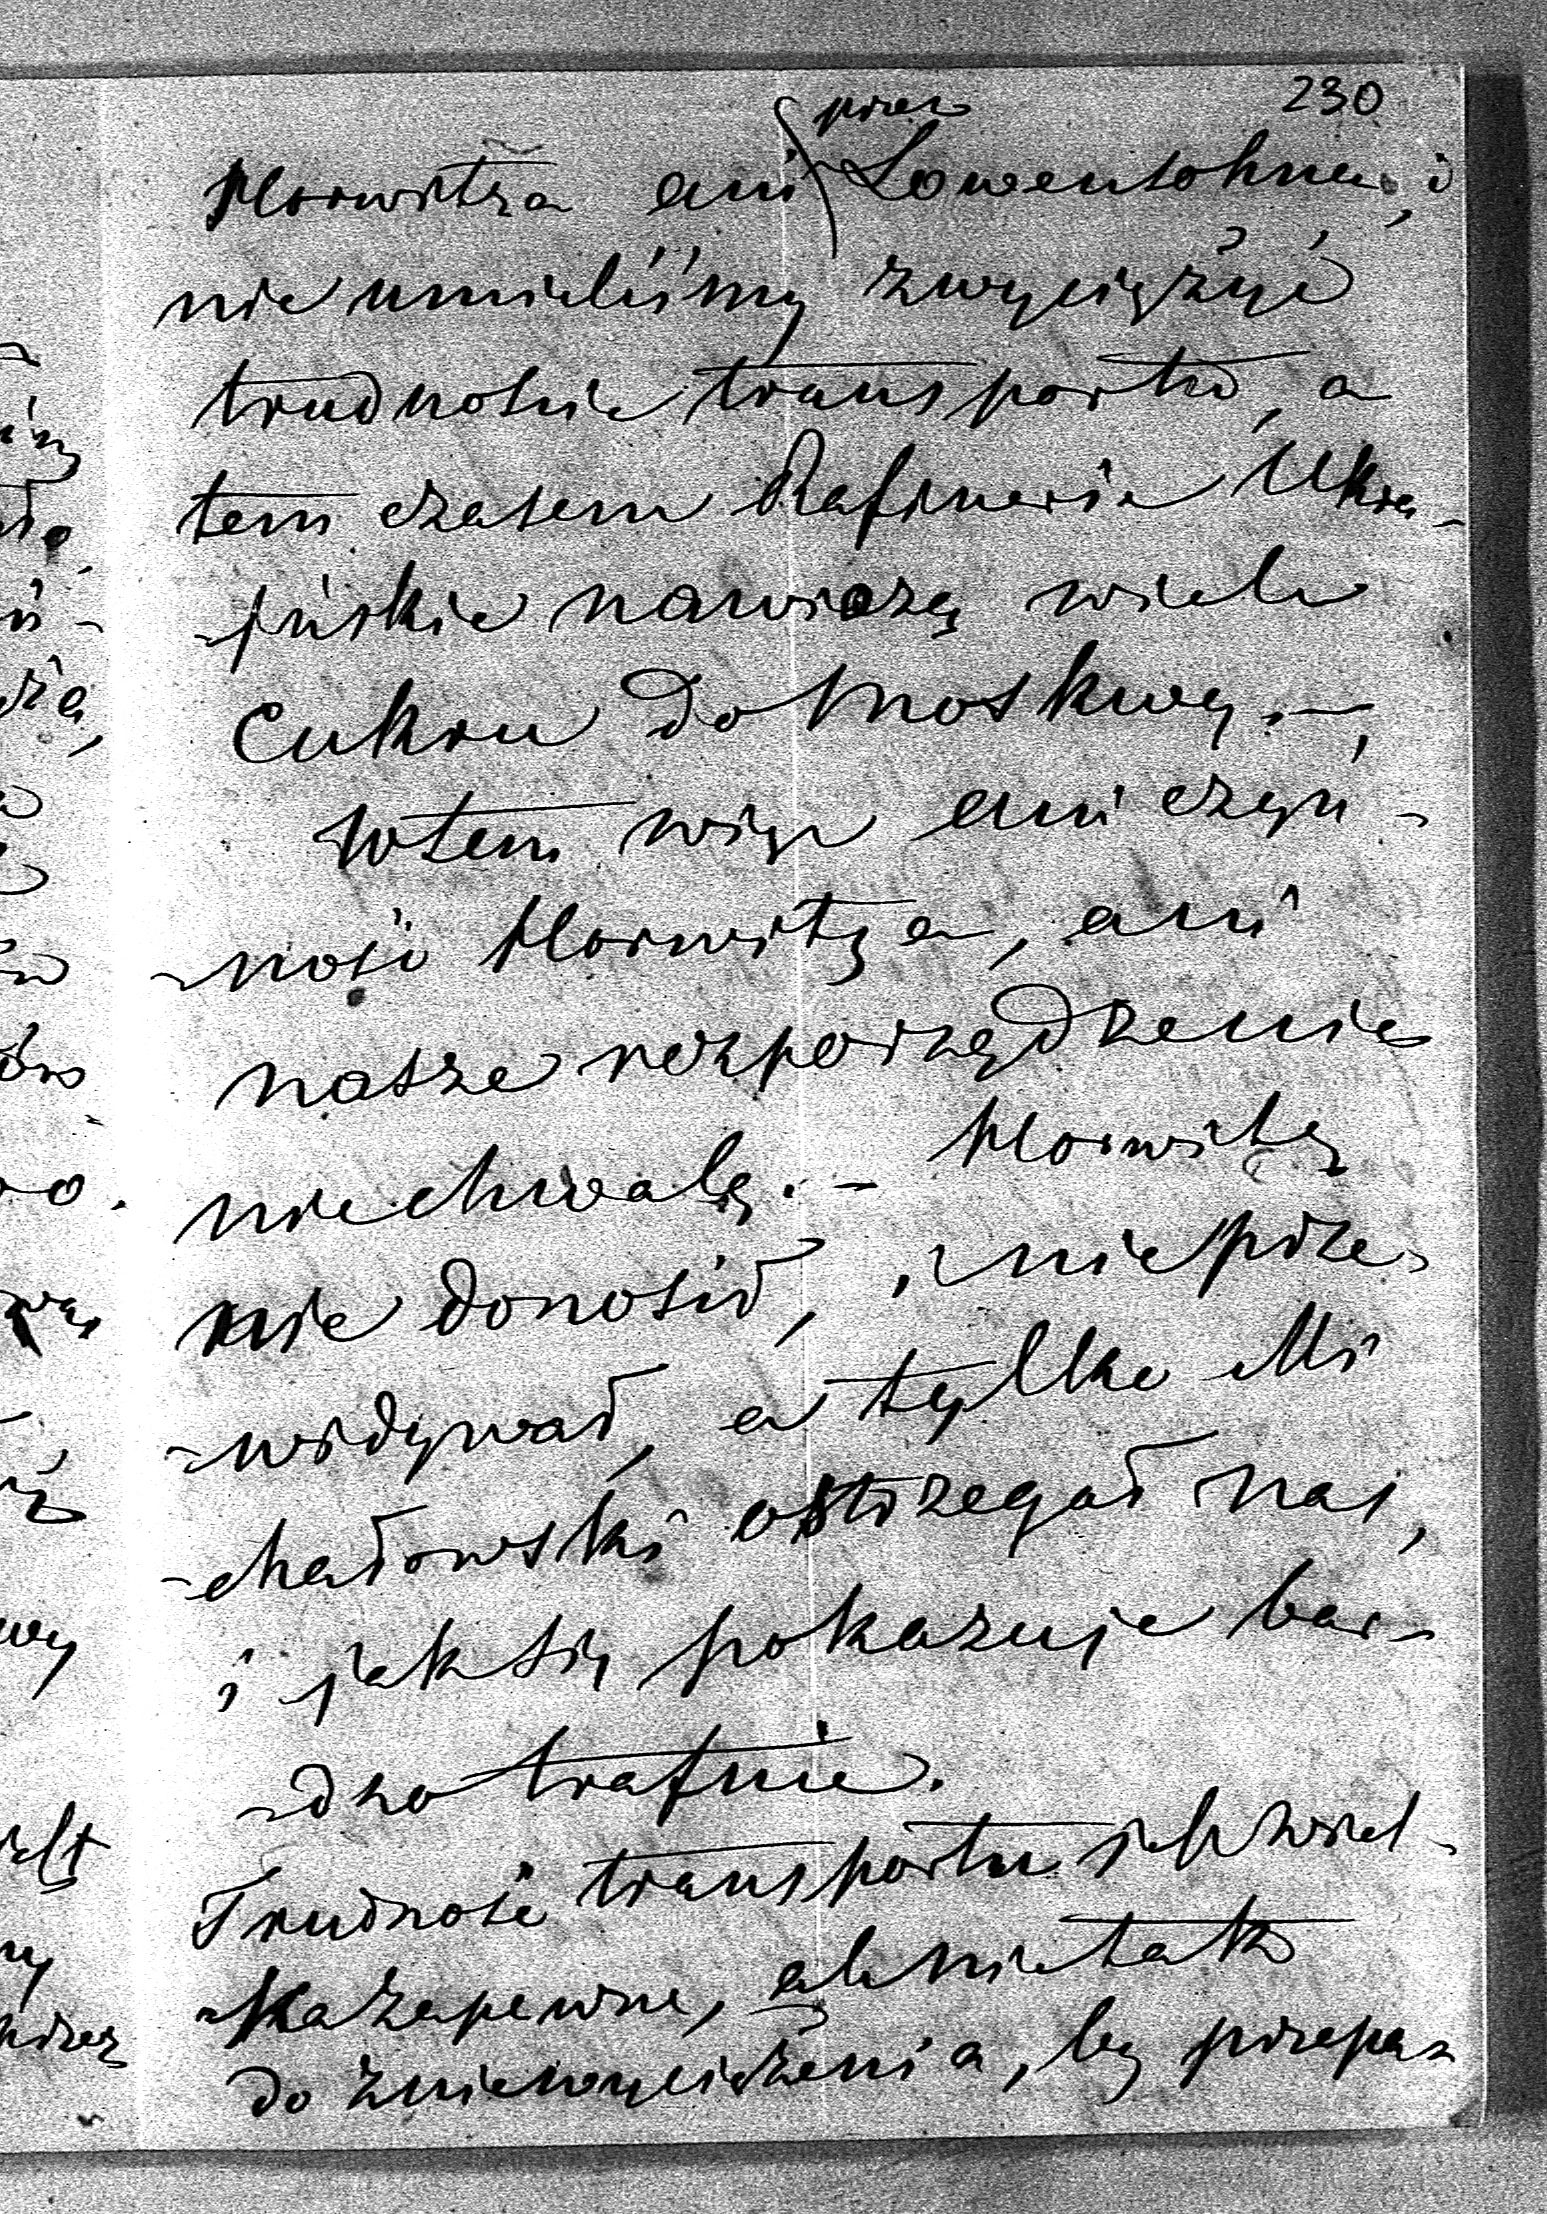 230
przez
Horwitza ani Lowensohna, i
nie umieliśmy zwyciężyć
trudnoście transportu, a
tem czasem Rafinerie Ukra-
-jińskie nawiozą wiele
Cukru do Moskwy.—
W tem więc ani czyn-
-ność Horwitza, ani
nasze rozporządzenie
nie chwalę. — Horwitz
nie donosił, i nieprze-
-widywał, a tylko Mi
-chałowski ostrzegał nas,
i jak się pokazuje bar-
-dzo trafnie.
Trudność transportu jest wiel-
-ka zapewne, ale nie tak
do zniewyciężenia, by przepa-